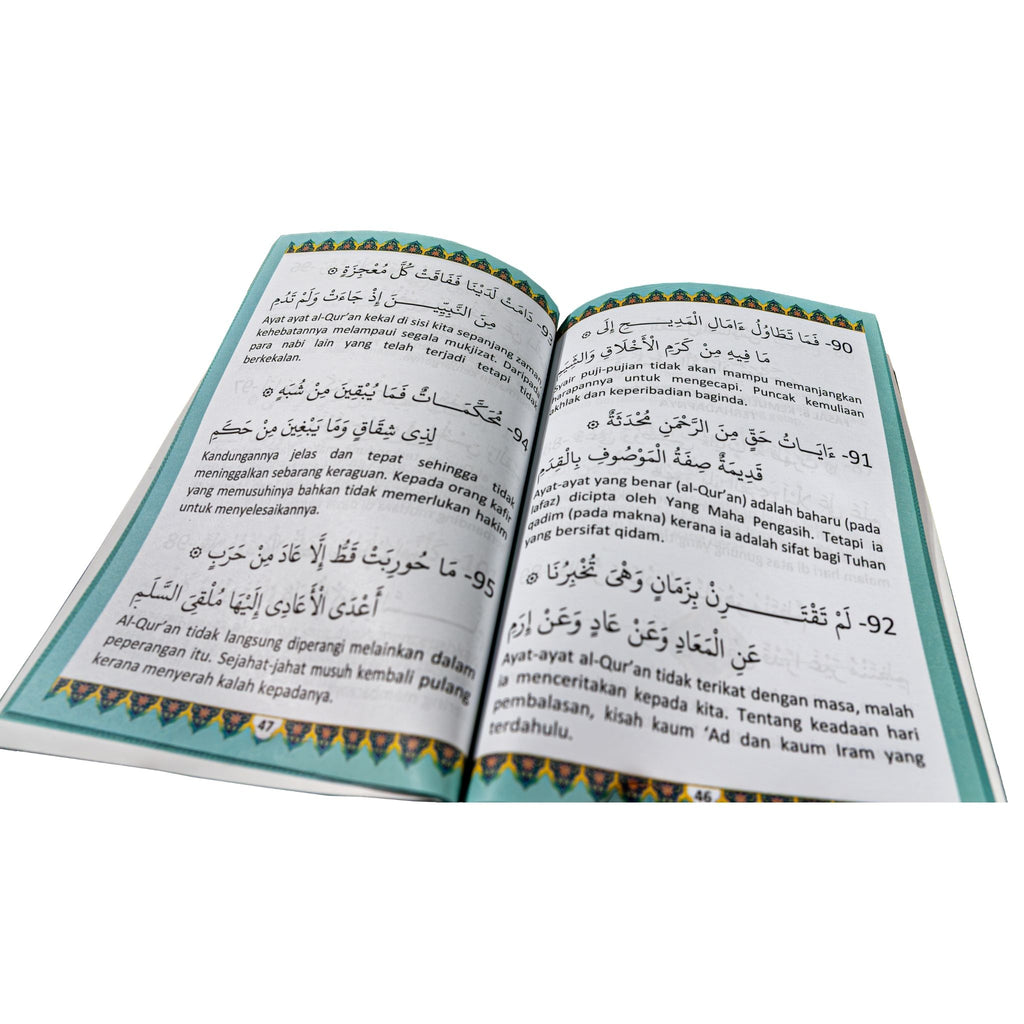 90- فَمَا تَطَاوُلُ ءَامَالِ الْمَدِيـــحِ إِلَى ۞
مَا فِيهِ مِنْ كَرَمِ الْأَخْلَاقِ وَالشِّيَمِ
Syair puji-pujian tidak akan mampu memanjangkan
harapannya untuk mengecapi. Puncak kemuliaan
akhlak dan keperibadian baginda.
91- ءَايَـــاتُ حَقٍّ مِنَ الرَّحْمَنِ مُحْدَثَةٌ ۞
قَدِيمَةٌ صِفَةُ الْمَوْصُوفِ بِالْقِدَمِ
Ayat-ayat yang benar (al-Qur’an) adalah baharu (pada
lafaz) dicipta oleh Yang Maha Pengasih. Tetapi ia
qadim (pada makna) kerana ia adalah sifat bagi Tuhan
yang bersifat qidam.
92- لَمْ تَقْتَـــــرِنْ بِزَمَانٍ وَهْىَ تُخْبِرُنَا ۞
عَنِ الْمَعَادِ وَعَنْ عَادٍ وَعَنْ إِرَمِ
Ayat-ayat al-Qur’an tidak terikat dengan masa, malah
ia menceritakan kepada kita. Tentang keadaan hari
pembalasan, kisah kaum ‘Ad dan kaum Iram yang
terdahulu.
46
93- دَامَتْ لَدَيْنَا فَفَاقَتْ كُلَّ مُعْجِزَةٍ ۞
مِنَ النَّبِيِّـــــنَ إِذْ جَاءَتْ وَلَمْ تَدُمِ
Ayat ayat al-Qur’an kekal di sisi kita sepanjang zaman
kehebatannya melampaui segala mukjizat. Daripada
para nabi lain yang telah terjadi tetapi tidak
berkekalan.
94- مُحَكَّمَـــاتٌ فَمَا يُبْقِينَ مِنْ شُبَهٍ ۞
لِذِى شِقَاقٍ وَمَا يَبْغِينَ مِنْ حَكَمِ
Kandungannya jelas dan tepat sehingga tidak
meninggalkan sebarang keraguan. Kepada orang kafir
yang memusuhinya bahkan tidak memerlukan hakim
untuk menyelesaikannya.
95- مَا حُورِبَتْ قَطُّ إِلَّا عَادَ مِنْ حَرَبٍ ۞
أَعْدَى الْأَعَادِى إِلَيْهَا مُلْقِىَ السَّلَمِ
Al-Qur’an tidak langsung diperangi melainkan dalam
peperangan itu. Sejahat-jahat musuh kembali pulang
kerana menyerah kalah kepadanya.
47